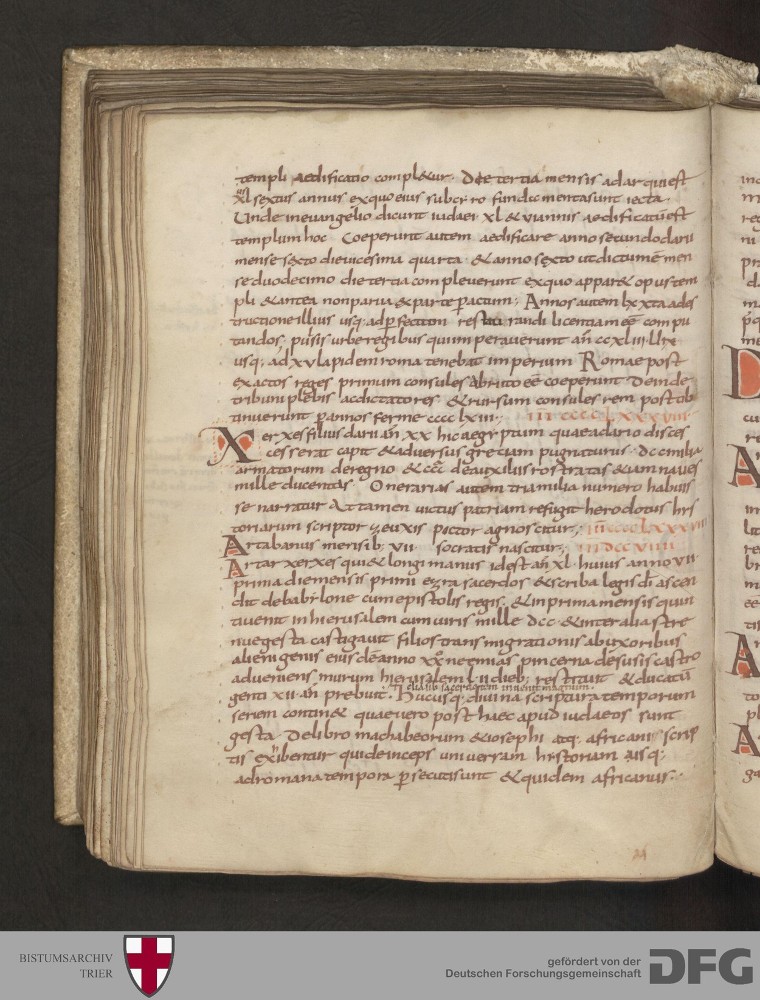 templi aedificatio completur. Die tertia mensis adar qui est
xl sextus annus ex quo eius sub cyro fundamenta sunt iecta
Unde in evangelio dicunt iudaei xl & vi annis aedificatū est
templum hoc Coeperunt autem aedificare anno secundo darii
mense sexto die vicesima quarta & anno sexto ut dictum ē men
se duodecimo die tertia compleverunt ex quo appar& opus tem
pli & antea non parva ex parte pactum; Annos autem lxx ta a des
tructione illius usq; ad pfectam restau randi licentiam eē compu
tandos; pulsis urbe regibus qui imperaverunt an ccxliii
usq; ad xv lapidem roma tenebat imperium Romae post
exactos reges primum consules a bruto eē coeperunt Deinde
tribuni plebis ac dictatores & rursum consules rem pu
tinuerunt p annos ferme cccc lxiiii
Xerxes filius darii an xx hic aegyptum quae a dario disces
cesserat capit & adversus greciam pugnaturus. dcc milia
armatorum de regno & ccc de auxiliis rostratas & iam naves
mille ducentas Onerarias autem tria milia numero habuis
se narratur Attamen victus patriam refugit herodotus hys
toriarum scriptor zeuxis pictor agnoscitur;
Artabanus mensib; vii socratis nascitur;
Artarxerxes qui & longi manus id est an xl huius anno vii
prima die mensis primi ezra sacerdos & scriba legis dī ascen
dit de babylone cum epistolis regis; & in prima mensis quin
ti venit in hierusalem cum viris mille dcc & inter alia stre
nue gesta castigavit filios transmigrationis ab uxoribus
alienigenis eius dē anno xx neemias pincerna de susis castro
adveniens murum hierusalem lii dieb; restituit & ducatū
genti xii an prebuit.
Hucusq; divina scriptura temporum
seriem contin& quae vero post haec apud iudaeos sunt
gesta De libro machabeorum & iosephi atq; africani scrip
tis exibentur qui deinceps universam historiam usq;
ad romana tempora psecuti sunt & quidem africanus.
BISTUMSARCHIV
TRIER
gefördert von der
Deutschen Forschungsgemeinschaft
DFG